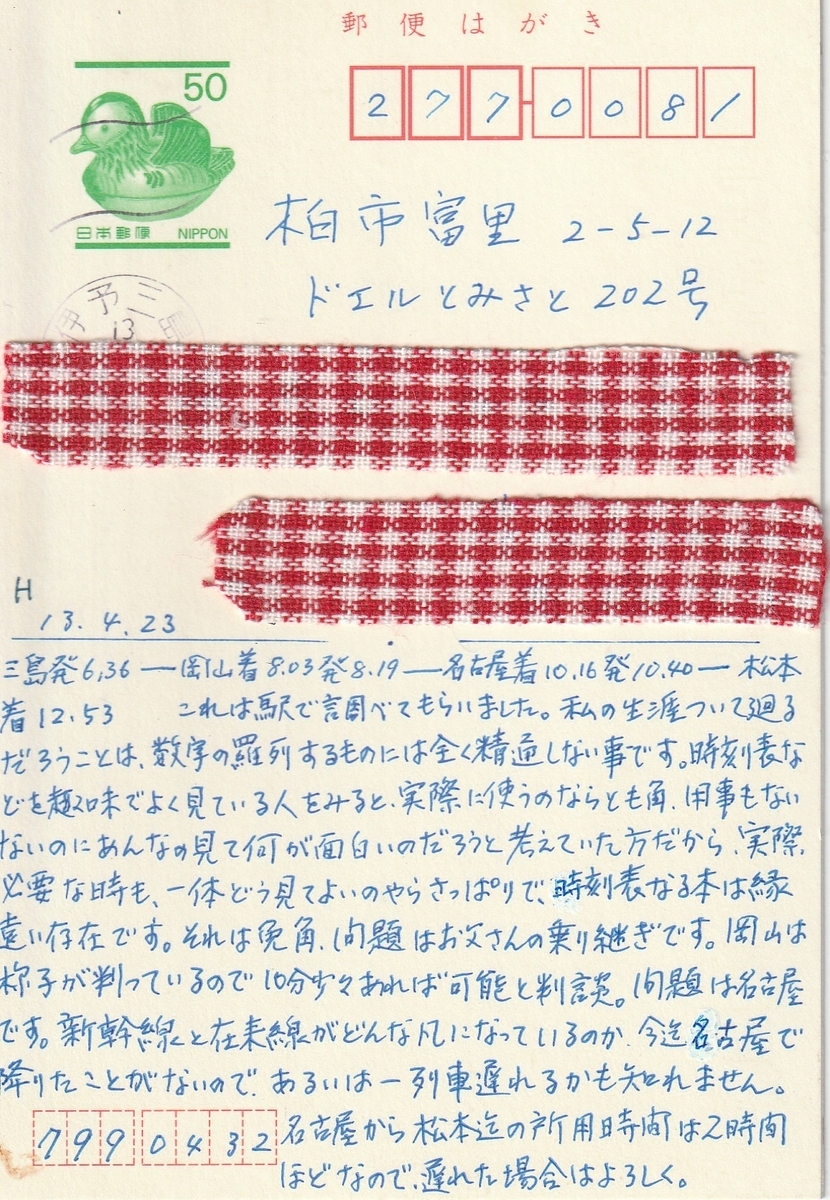 郵便はがき
50
日本郵便 NIPPON
2770081
柏市富里 2-5-12
ドエルとみさと 202号
伊予三島
13
H
13.4.23
三島発6.36 ― 岡山着8.03発8.19 ― 名古屋着10.16発10.40 ― 松本
着12.53 これは駅で調べてもらいました。私の生涯ついて廻る
だろうことは、数字の羅列するものには全く精通しない事です。時刻表な
どを趣味でよく見ている人をみると、実際に使うのならとも角、用事もない
ないのにあんなの見て何が面白いのだろうと考えていた方だから、実際
必要な時も、一体どう見てよいのやらさっぱりで、時刻表なる本は縁
遠い存在です。それは兎角、問題はお父さんの乗り継ぎです。岡山は
様子が判っているので10分少々あれば可能と判談。問題は名古屋
です。新幹線と在来線がどんな風になっているのか、今迄名古屋で
降りたことがないので、あるいは一列車遅れるかも知れません。
名古屋から松本迄の所用時間は2時間
ほどなので、遅れた場合はよろしく。
7990432